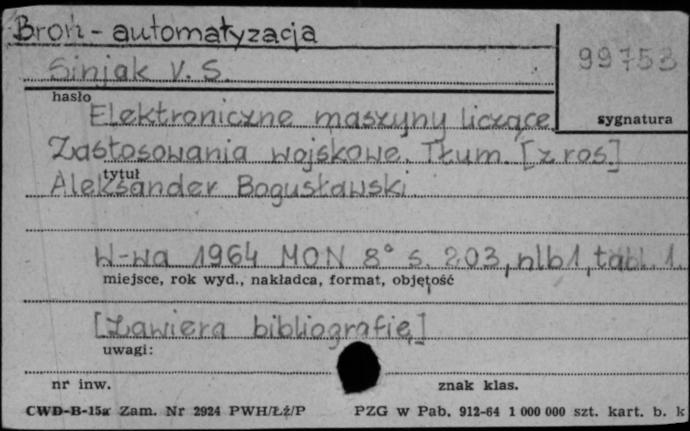 Broń - automatyzacja
Sinjak V. S.
99753
hasło
sygnatura
Elektroniczne maszyny liczące.
Zastosowania wojskowe. Tłum. [z ros.]
tytuł
Aleksander Bogusławski.
W-wa 1964 MON 8° s. 203, nlb1, tabl. 1.
miejsce, rok wyd., nakładca, format, objętość
[Zawiera bibliografię]
uwagi:
nr inw. znak klas.
CWD-B-15a Zam. Nr 2924 PWH/Łź/P PZG w Pab. 912-64 1 000 000 szt. kart. b. k